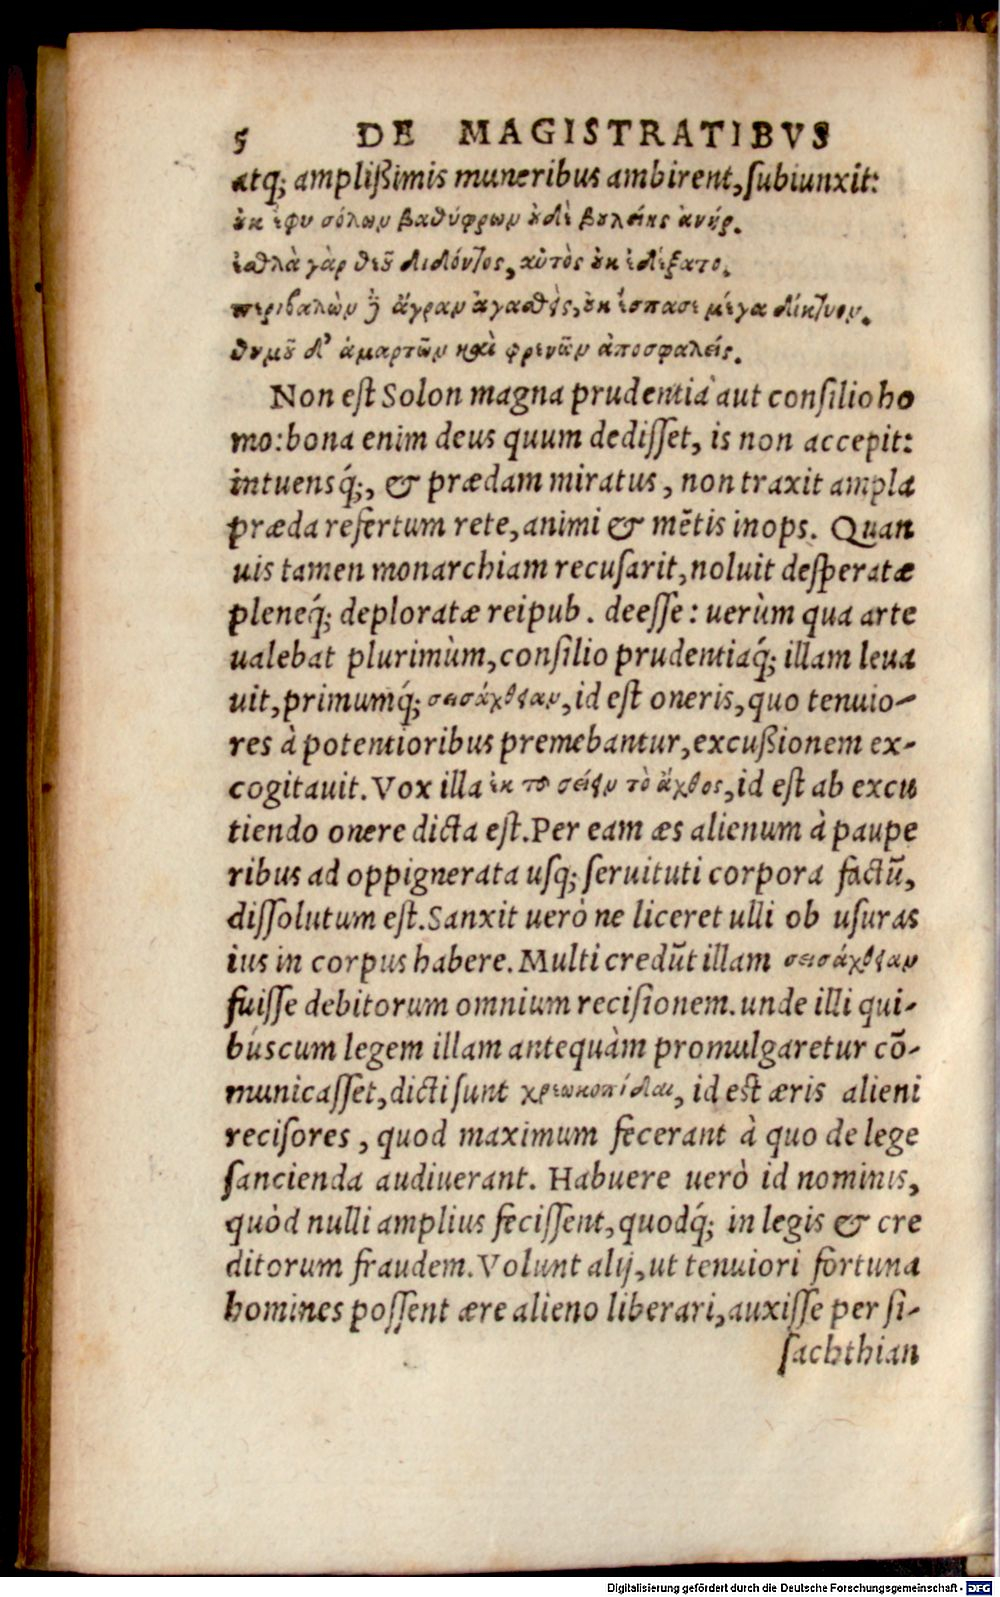 5 DE MAGISTRATIBVS
atq; amplißimis muneribus ambirent, subiunxit:
ὐκ ἔφυ σόλων βαθύφρων ὐδὲ βυλήεις ἀνήρ.
ἐσθλὰ γὰρ θεῦ διδόντος, αὐτὸς ὐκ ἐδέξατο.
περιβαλὼν ἄγραν ἀγασθεὶς, ὐκ ἔσπασε μέγα δίκτυον.
θυμῦ δ' ἁμαρτῶν καὶ φρενῶν ἀποσφαλείς.
Non est Solon magna prudentia aut consilio ho
mo: bona enim deus quum dedisset, is non accepit:
intuensq́;, & prædam miratus, non traxit ampla
præda refertum rete, animi & mẽtis inops. Quan
uis tamen monarchiam recusarit, noluit desperatæ
pleneq́; deploratæ reipub. deesse: uerùm qua arte
ualebat plurimùm, consilio prudentiaq́; illam leua
uit, primumq́; σεισάχθειαν, id est oneris, quo tenuio-
res à potentioribus premebantur, excußionem ex-
cogitauit. Vox illa ἐκ τῦ σείειν τὸ ἄχθος, id est ab excu
tiendo onere dicta est. Per eam æs alienum à paupe
ribus ad oppignerata usq; seruituti corpora factũ,
dissolutum est. Sanxit uerò ne liceret ulli ob usuras
ius in corpus habere. Multi credũt illam σεισάχθειαν
fuisse debitorum omnium recisionem. unde illi qui-
buscum legem illam antequàm promulgaretur cõ-
municasset, dicti sunt χρεωκοπίδαι, id est æris alieni
recisores, quod maximum fecerant à quo de lege
sancienda audiuerant. Habuere uerò id nominis,
quòd nulli amplius fecissent, quodq́; in legis & cre
ditorum fraudem. Volunt alij, ut tenuiori fortuna
homines possent ære alieno liberari, auxisse per si-
sachthian
Digitalisierung gefördert durch die Deutsche Forschungsgemeinschaft - DFG